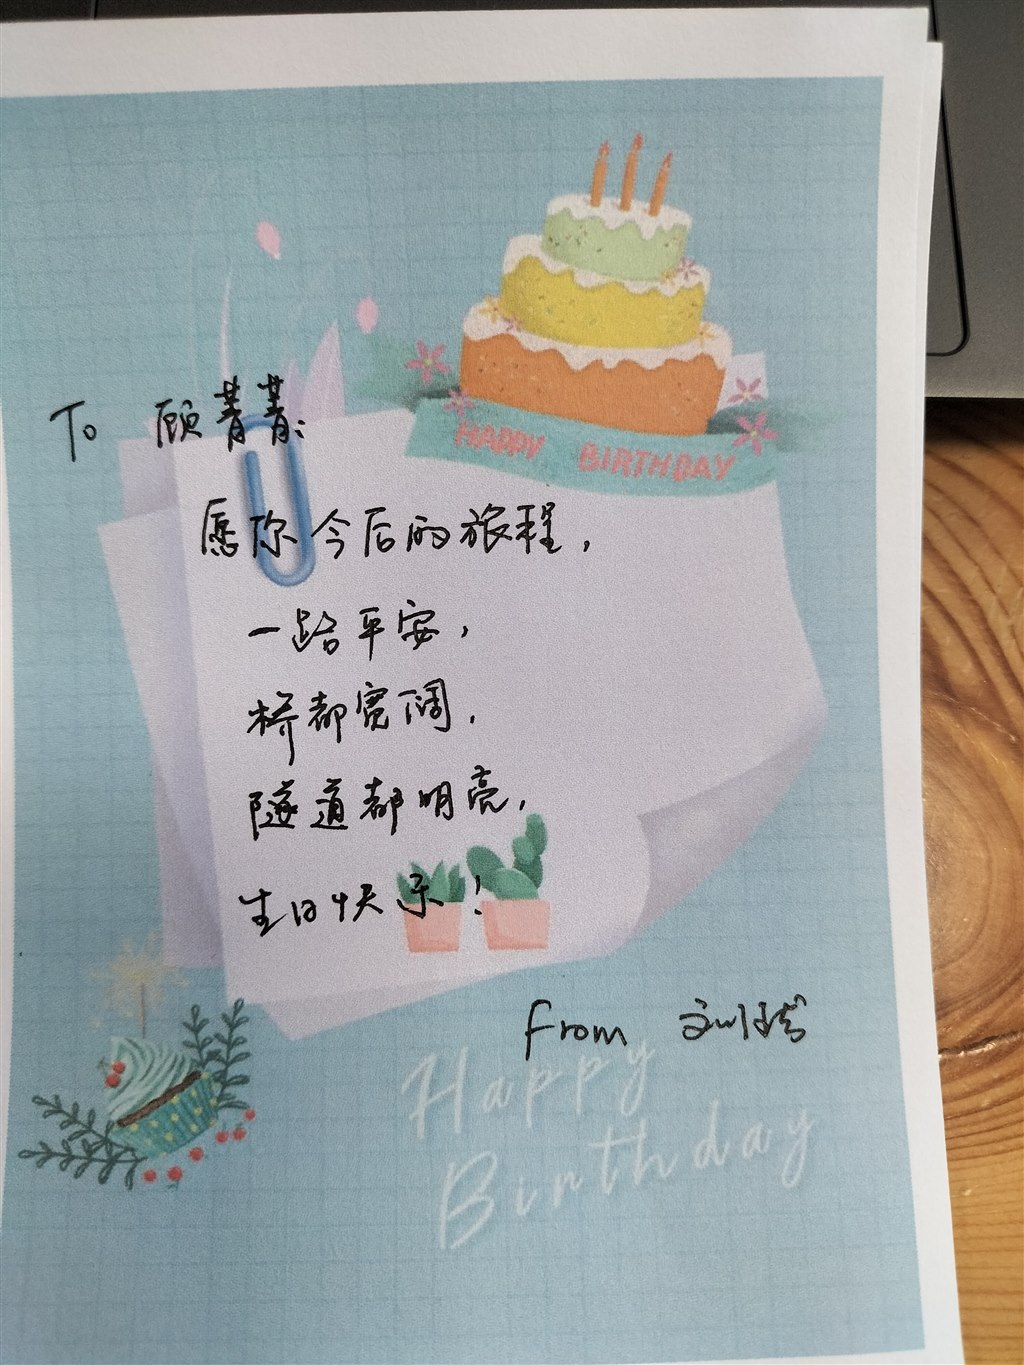 HAPPY BIRTHDAY
To 顾菁菁:
愿你今后的旅程,
一路平安,
桥都宽阔,
隧道都明亮,
生日快乐!
From 刘
Happy
Birthday